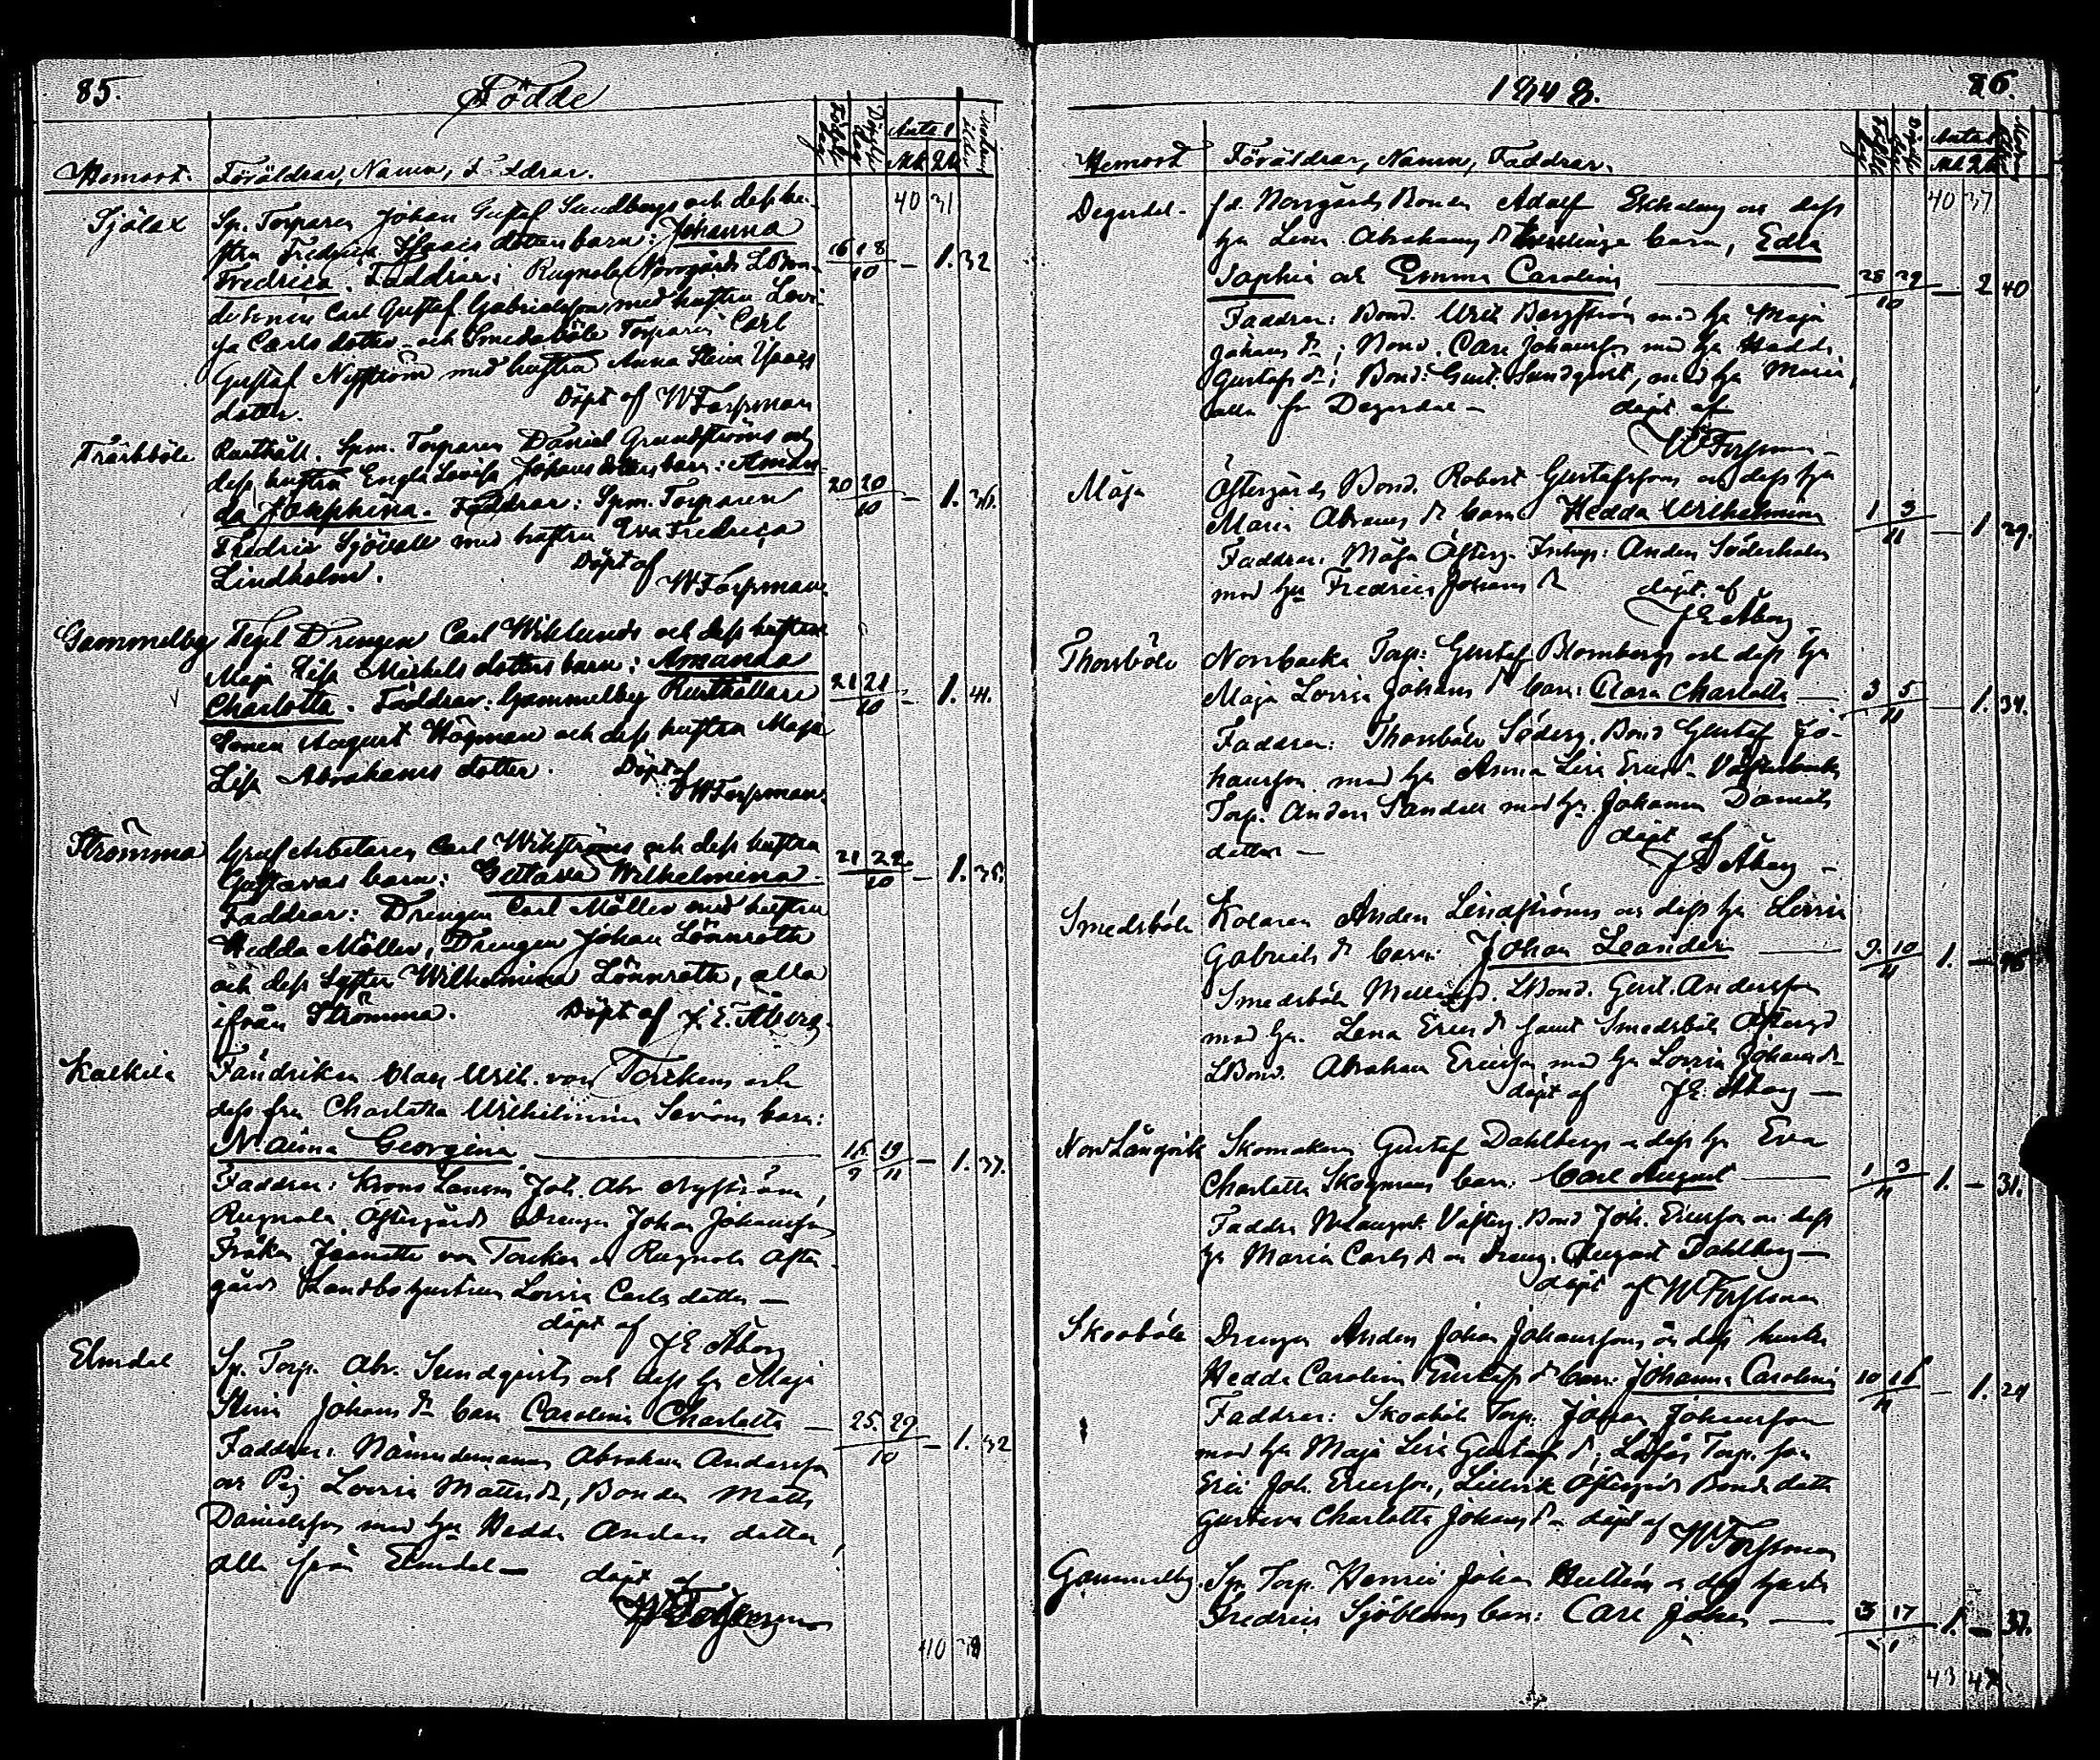 85. Födde
Hemort. Föräldrar, Namn, Faddrar. Födelse dag Döpelse dag Antal Mk Qk Modrens ålder
40 31
Sjölax Sp. Torparen Johan Gustaf Sundbergs och dess hu-
stru Fredrica Isaacs dotters barn: Johanna
Fredrica. Faddrar: Rugnola Norrgårds LBon- 16 18/10 - 1. 32
de Sonen Carl Gustaf Gabrielsson med hustru Lovi-
sa Carls dotter och Smedsböle Torparen Carl
Gustaf Nyström med hustru Anna Stina Isaacs
dotter. Döpt af W Forssman
Träskböle Rusthåll. Spm. Torparen Daniel Grundströms och
dess hustru Engla Lovisa Johans dotters barn: Aman-
da Josephina. Faddrar: Spm. Torparen 20 20/10 - 1. 36.
Fredric Sjövall med hustru Eva Fredrica
Lindholm. Döpt af
W Forssman.
Gammelby Tegl Drengen Carl Wiklunds och dess hustru
Maja Lisa Michels dotters barn: Amanda
Charlotta. Faddrar: Gammelby Rusthållare 21 21/10 - 1. 41.
Sonen August Högman och dess hustru Maja
Lisa Abrahams dotter. Döpt af
W Forssman.
Strömma Grufarbetaren Carl Wikströms och dess hustru
Gustavas barn: Gustava Wilhelmina. 21 22/10 - 1. 35.
Faddrar: Drengen Carl Möller med hustru
Hedda Möller, Drengen Johan Lönnroth
och dess Syster Wilhelmina Lönnroth, alla
ifrån Strömma. Döpt af J. E. Åberg.
Kalkila Fändriken Clas Wilh. von Torcken och
dess fru Charlotta Wilhelmina Savons barn:
Naima Georgina 15 19/9 11 - 1. 37.
Faddrar: Krono Länsm. Joh. Abr Nyström,
Rugnola Östergårds Drengen Johan Johansson
Fröken Jeanette von Torcken och Rugnola Öster
gårds Landbohustrun Lovisa Carls dotter —
döpt af
J E Åberg
Elmdal Sp. Torp. Abr. Sundqvists och dess hu Maja
Stina Johans dr barn Carolina Charlotta — 25. 29/10 - 1. 32
Faddrar: Nämndemannen Abraham Andersson
och Pig Lovisa Mattsdr, Bonden Matts
Danielsson med hu Hedda Anders dotter
alla från Elmdal — döpt af
W Forssman
40 38
1848. 86.
Hemort Föräldrar, Namn, Faddrar. Födelse dag Döpelse dag Antal Mk Qk Modrens ålder
40 37
Degerdal. fd. Norrgårds Bonden Adolf och dess
hu Lena Abrahams dr tvillinge barn, Edla
Sophia och Emma Carolina — 28 29/10 — 2 40
Faddrar: Bond. Wilh Bergström med hu Maja
Johans dr; Bond. Carl Johansson med hu Hedda
Gustafs dr; Bond: Gust. Sundqvist, med hu Maria
alla fr Degerdal — döpt af
W Forssman —
Måsa Östergårds Bond. Robert Gustafssons och dess hu
Maria Abrams dr barn Hedda Wilhelmina 1 3/11 — 1 29.
Faddrar: Måsa Österg. Inhys: Anders Söderholm
med hu Fredrica Johans dr döpt. af
J E Åberg
Thorsböle Norrbacka Torp: Gustaf Blombergs och dess hu
Maja Lovisa Johans dr barn: Clara Charlotta — 3 5/11 — 1. 34.
Faddrar: Thorsböle Söderg. Bond Gustaf Jo-
hansson med hu Anna Lisa Ericsdr
Torp. Anders Sandell med hu Johanna Daniels
dotter — döpt af
J E Åberg —
Smedsböle Kolaren Anders Lindströms och dess hu Lovisa
Gabriels dr barn: Johan Leander — 9. 10/11 1. —
Smedsböle Mellangd. LBond. Gust. Andersson
med hu. Lena Erics dr samt Smedsböle Östergd
LBond. Abraham Ericsson med hu Lovisa Johansdr
döpt af J E. Åberg —
Nord Långvik Skomakaren Gustaf Dahlbergs o dess hu Eva
Charlotta Skogmans barn: Carl August — 1 3/11 1. — 31.
Faddrar NLångvik Västerg. Bond Joh. Ericsson och dess
hu Maria Carls dr och Dreng. August Dahlberg —
döpt af W Forssman
Skoböle Drengen Anders Johan Johanssons och dess hustru
Hedda Carolina Gustafs dr barn: Johanna Carolina 10 16/11 — 1. 24
Faddrar: Skoböle Torp. Johan Johansson
med hu Maja Lisa Gustafs dr; Torp. son
Eric Joh. Ericsson, Östergårds Bondedotter
Gustava Charlotta Johans dr döpt af
W Forssman
Gammelby. Spm Torp. Henric Johan Hulténs o dess hustru
Fredrica Sjöbloms barn: Carl Johan — 17/11 1. — 37.
43